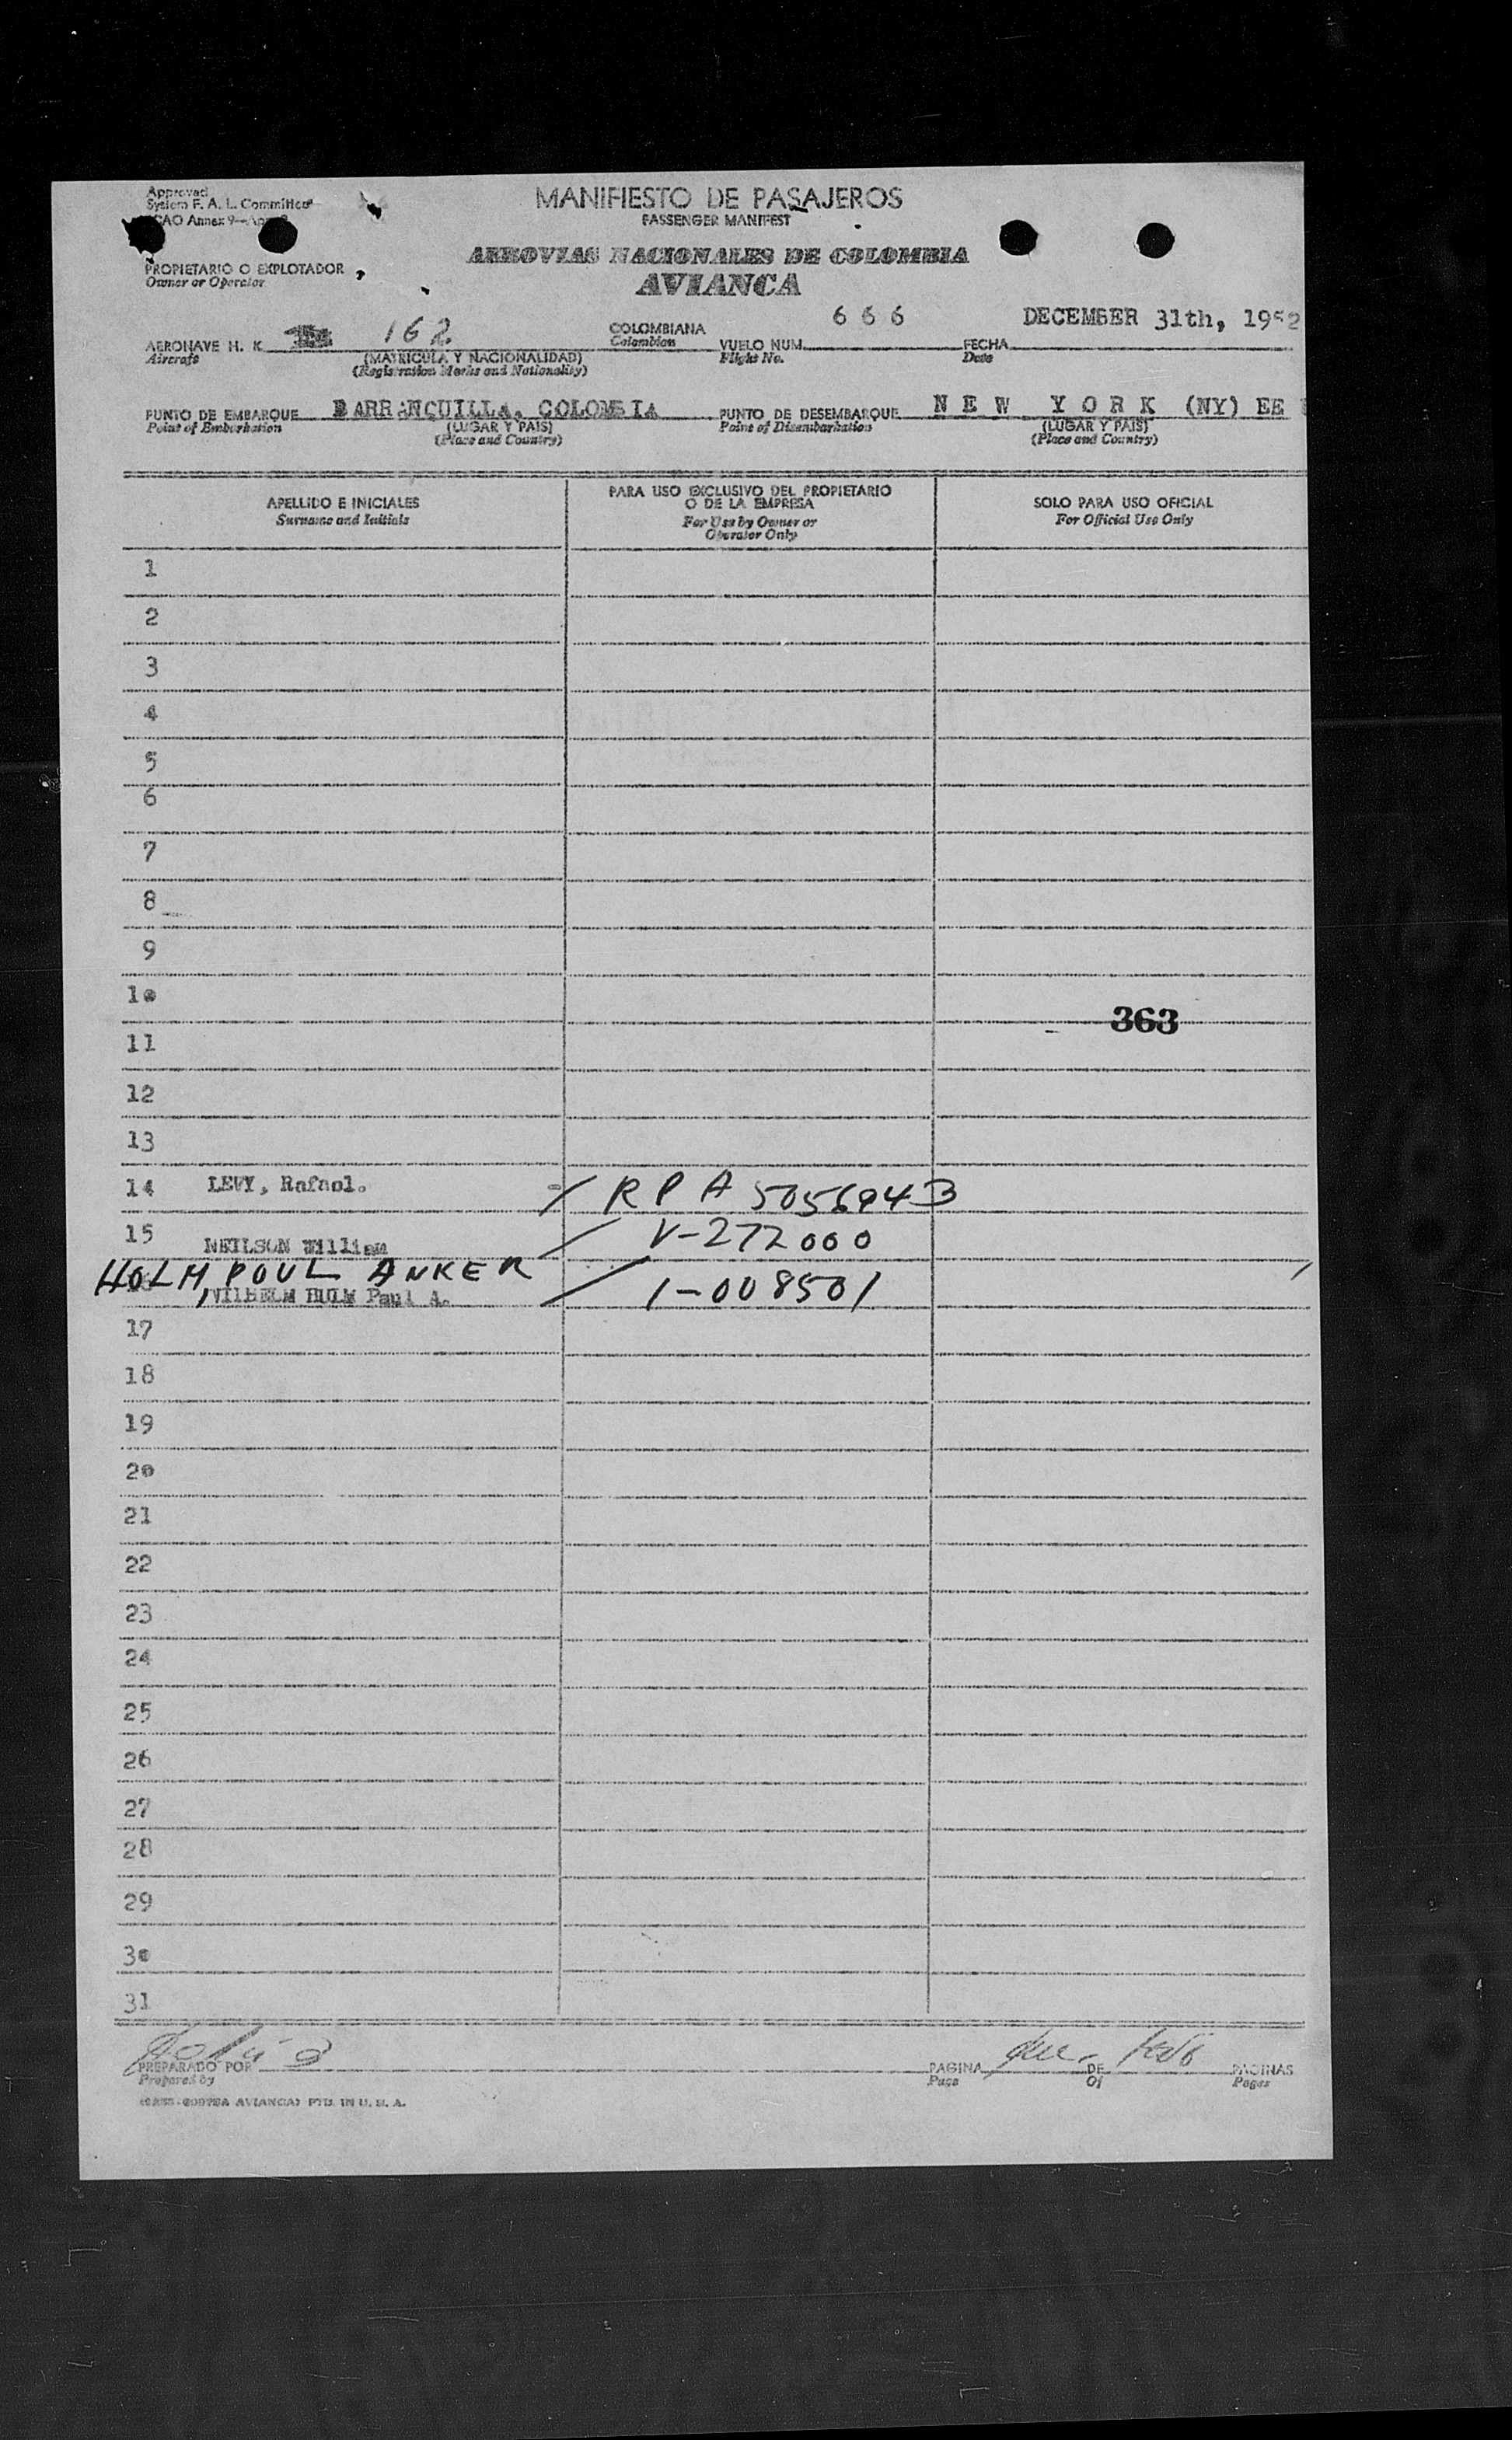 Approved
System F. A. L. Committee
ICAO Annex 9—App
MANIFIESTO DE PASAJEROS
PASSENGER MANIFEST
AEROVIAS NACIONALES DE COLOMBIA
AVIANCA
PROPIETARIO O EXPLOTADOR
Owner or Operator
AERONAVE H. K. 162 COLOMBIANA VUELO NUM. 6 6 6 FECHA DECEMBER 31th, 1952
Aircraft (MATRICULA Y NACIONALIDAD) Colombian Flight No. Date
(Registration Marks and Nationality)
PUNTO DE EMBARQUE BARRANQUILLA, COLOMBIA PUNTO DE DESEMBARQUE N E W Y O R K (NY) EE
Point of Embarkation (LUGAR Y PAIS) Point of Disembarkation (LUGAR Y PAIS)
(Place and Country) (Place and Country)
APELLIDO E INICIALES PARA USO EXCLUSIVO DEL PROPIETARIO SOLO PARA USO OFICIAL
Surname and Initials O DE LA EMPRESA For Official Use Only
For Use by Owner or
Operator Only
1
2
3
4
5
6
7
8
9
10
363
11
12
13
14 LEVY, Rafael. / R P A 5056943
15 NEILSON William / V-272000
HOLM, POUL ANKER
WILHELM HOLM Paul A. / 1-008501
17
18
19
20
21
22
23
24
25
26
27
28
29
30
31
PREPARADO POR PAGINA DE PAGINAS
Prepared by Page Of Pages
AVIANCA) PTD. IN U. S. A.